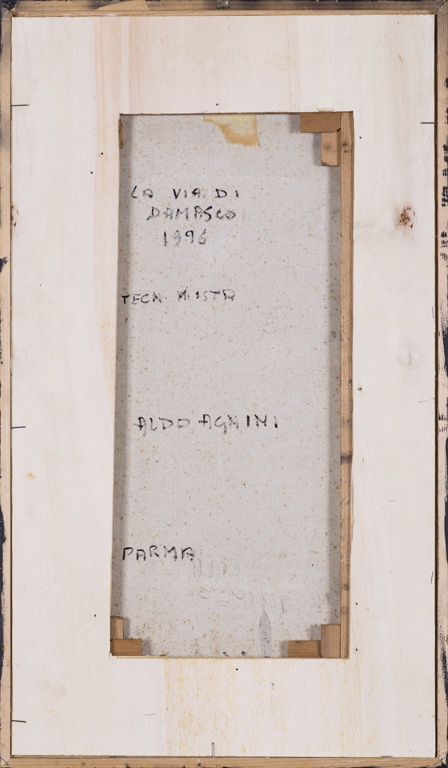 LA VIA DI
DAMASCO
1996
TECN. MISTA
ALDO AGNINI
PARMA